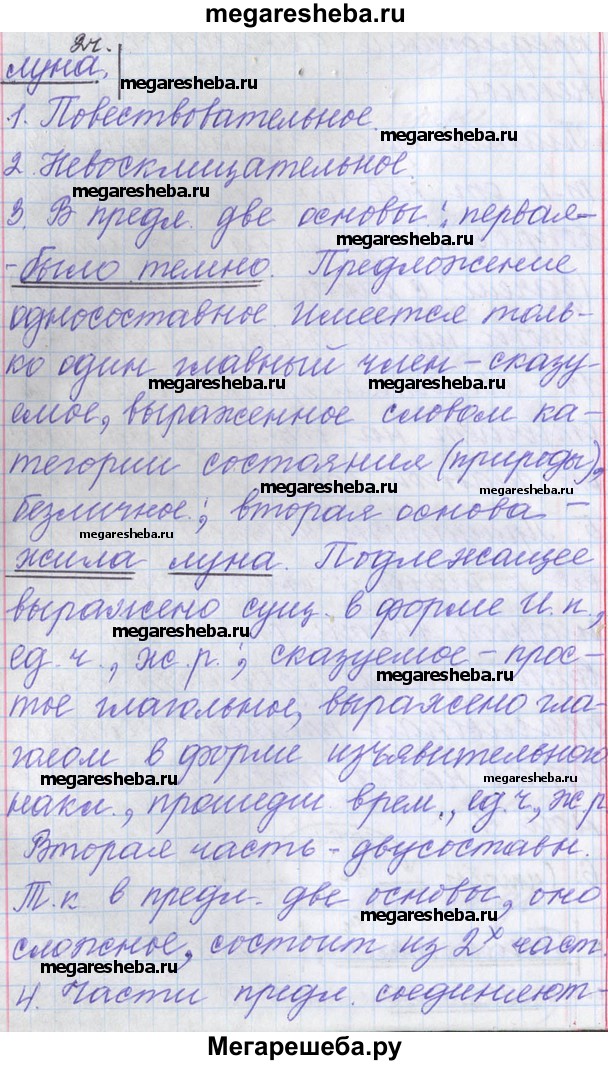 megaresheba.ru
2ч.
луна,
megaresheba.ru
1. Повествовательное.
megaresheba.ru
2. Невосклицательное.
megaresheba.ru
3. В предл. две основы: первая-
megaresheba.ru
-было темно. Предложение
megaresheba.ru
односоставное. Имеется толь-
ко один главный член - сказу-
megaresheba.ru megaresheba.ru
емое, выраженное словом ка-
тегории состояния (природы),
megaresheba.ru megaresheba.ru
безличное; вторая основа -
megaresheba.ru
жила луна. Подлежащее
выражено сущ. в форме И.п.,
megaresheba.ru
ед.ч., ж.р.; сказуемое - прос-
megaresheba.ru
тое глагольное, выражено гла-
голом в форме изъявительного
megaresheba.ru megaresheba.ru
накл., прошедш. врем., ед.ч., ж.р
Вторая часть - двусоставн.
Т.к в предл. две основы, оно
megaresheba.ru
сложное, состоит из 2х част.
megaresheba.ru
4. Части предл. соединяют-
Мегарешеба.ру